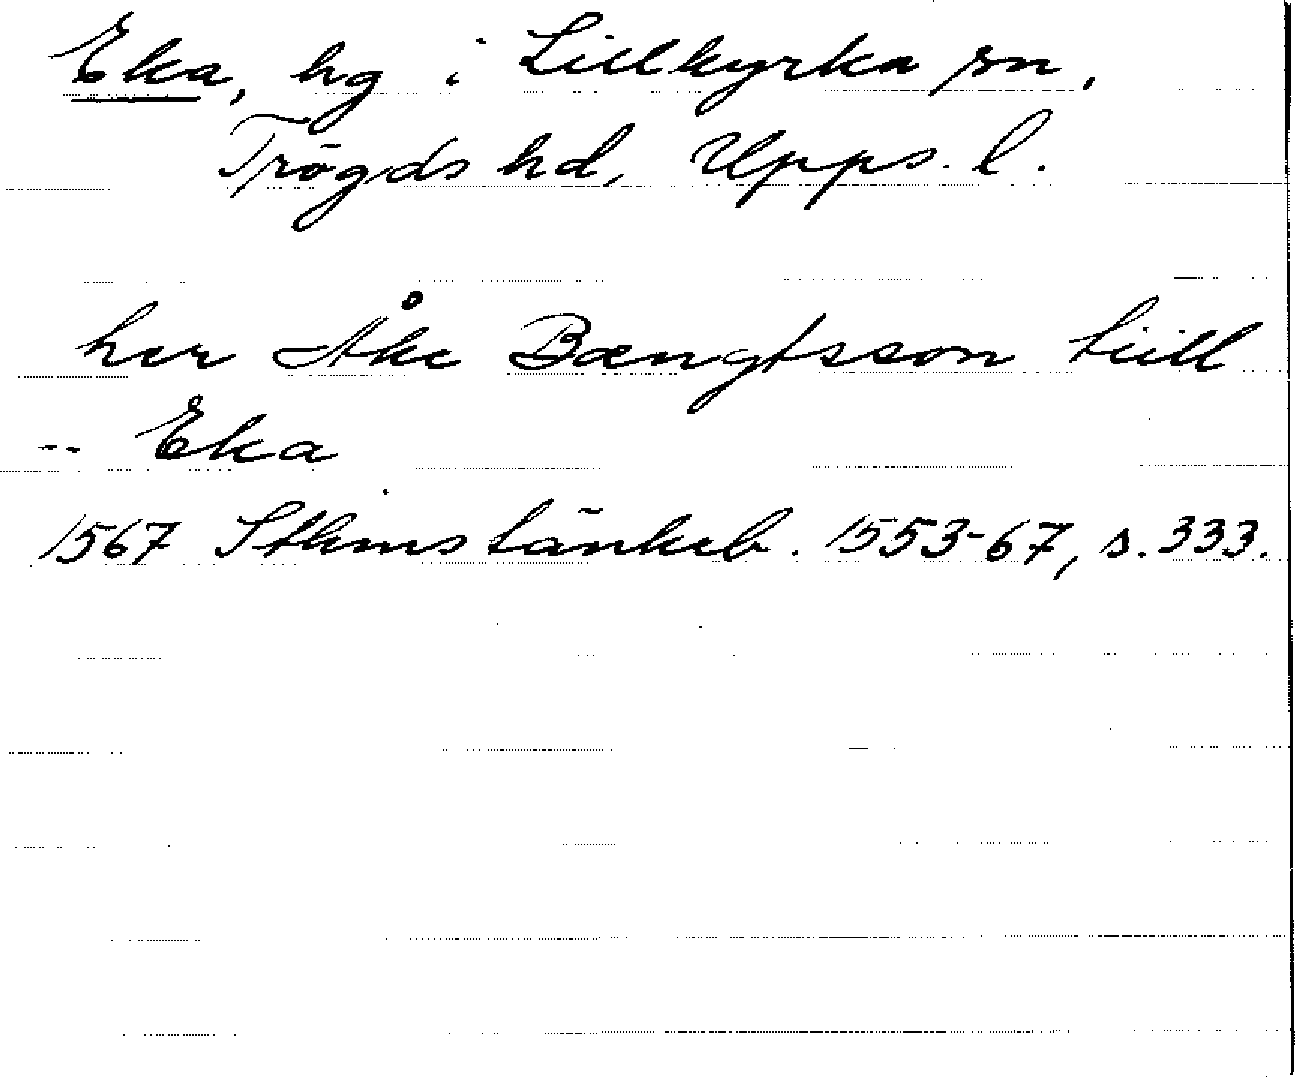 Eka, hg i Lillkyrka sn,
Trögds hd, Upps. l.
her Åke Bængtsson tiill
-- Eka
1567 Sthms tänkeb. 1553-67, s. 333.